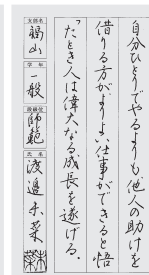 自分ひとりでやるよりも他人の助けを
借りる方がよりよい仕事ができると悟
ったとき人は偉大なる成長を遂げる。
支部名 福山
学年 一般
段級位 師範
氏名 渡邉未菜